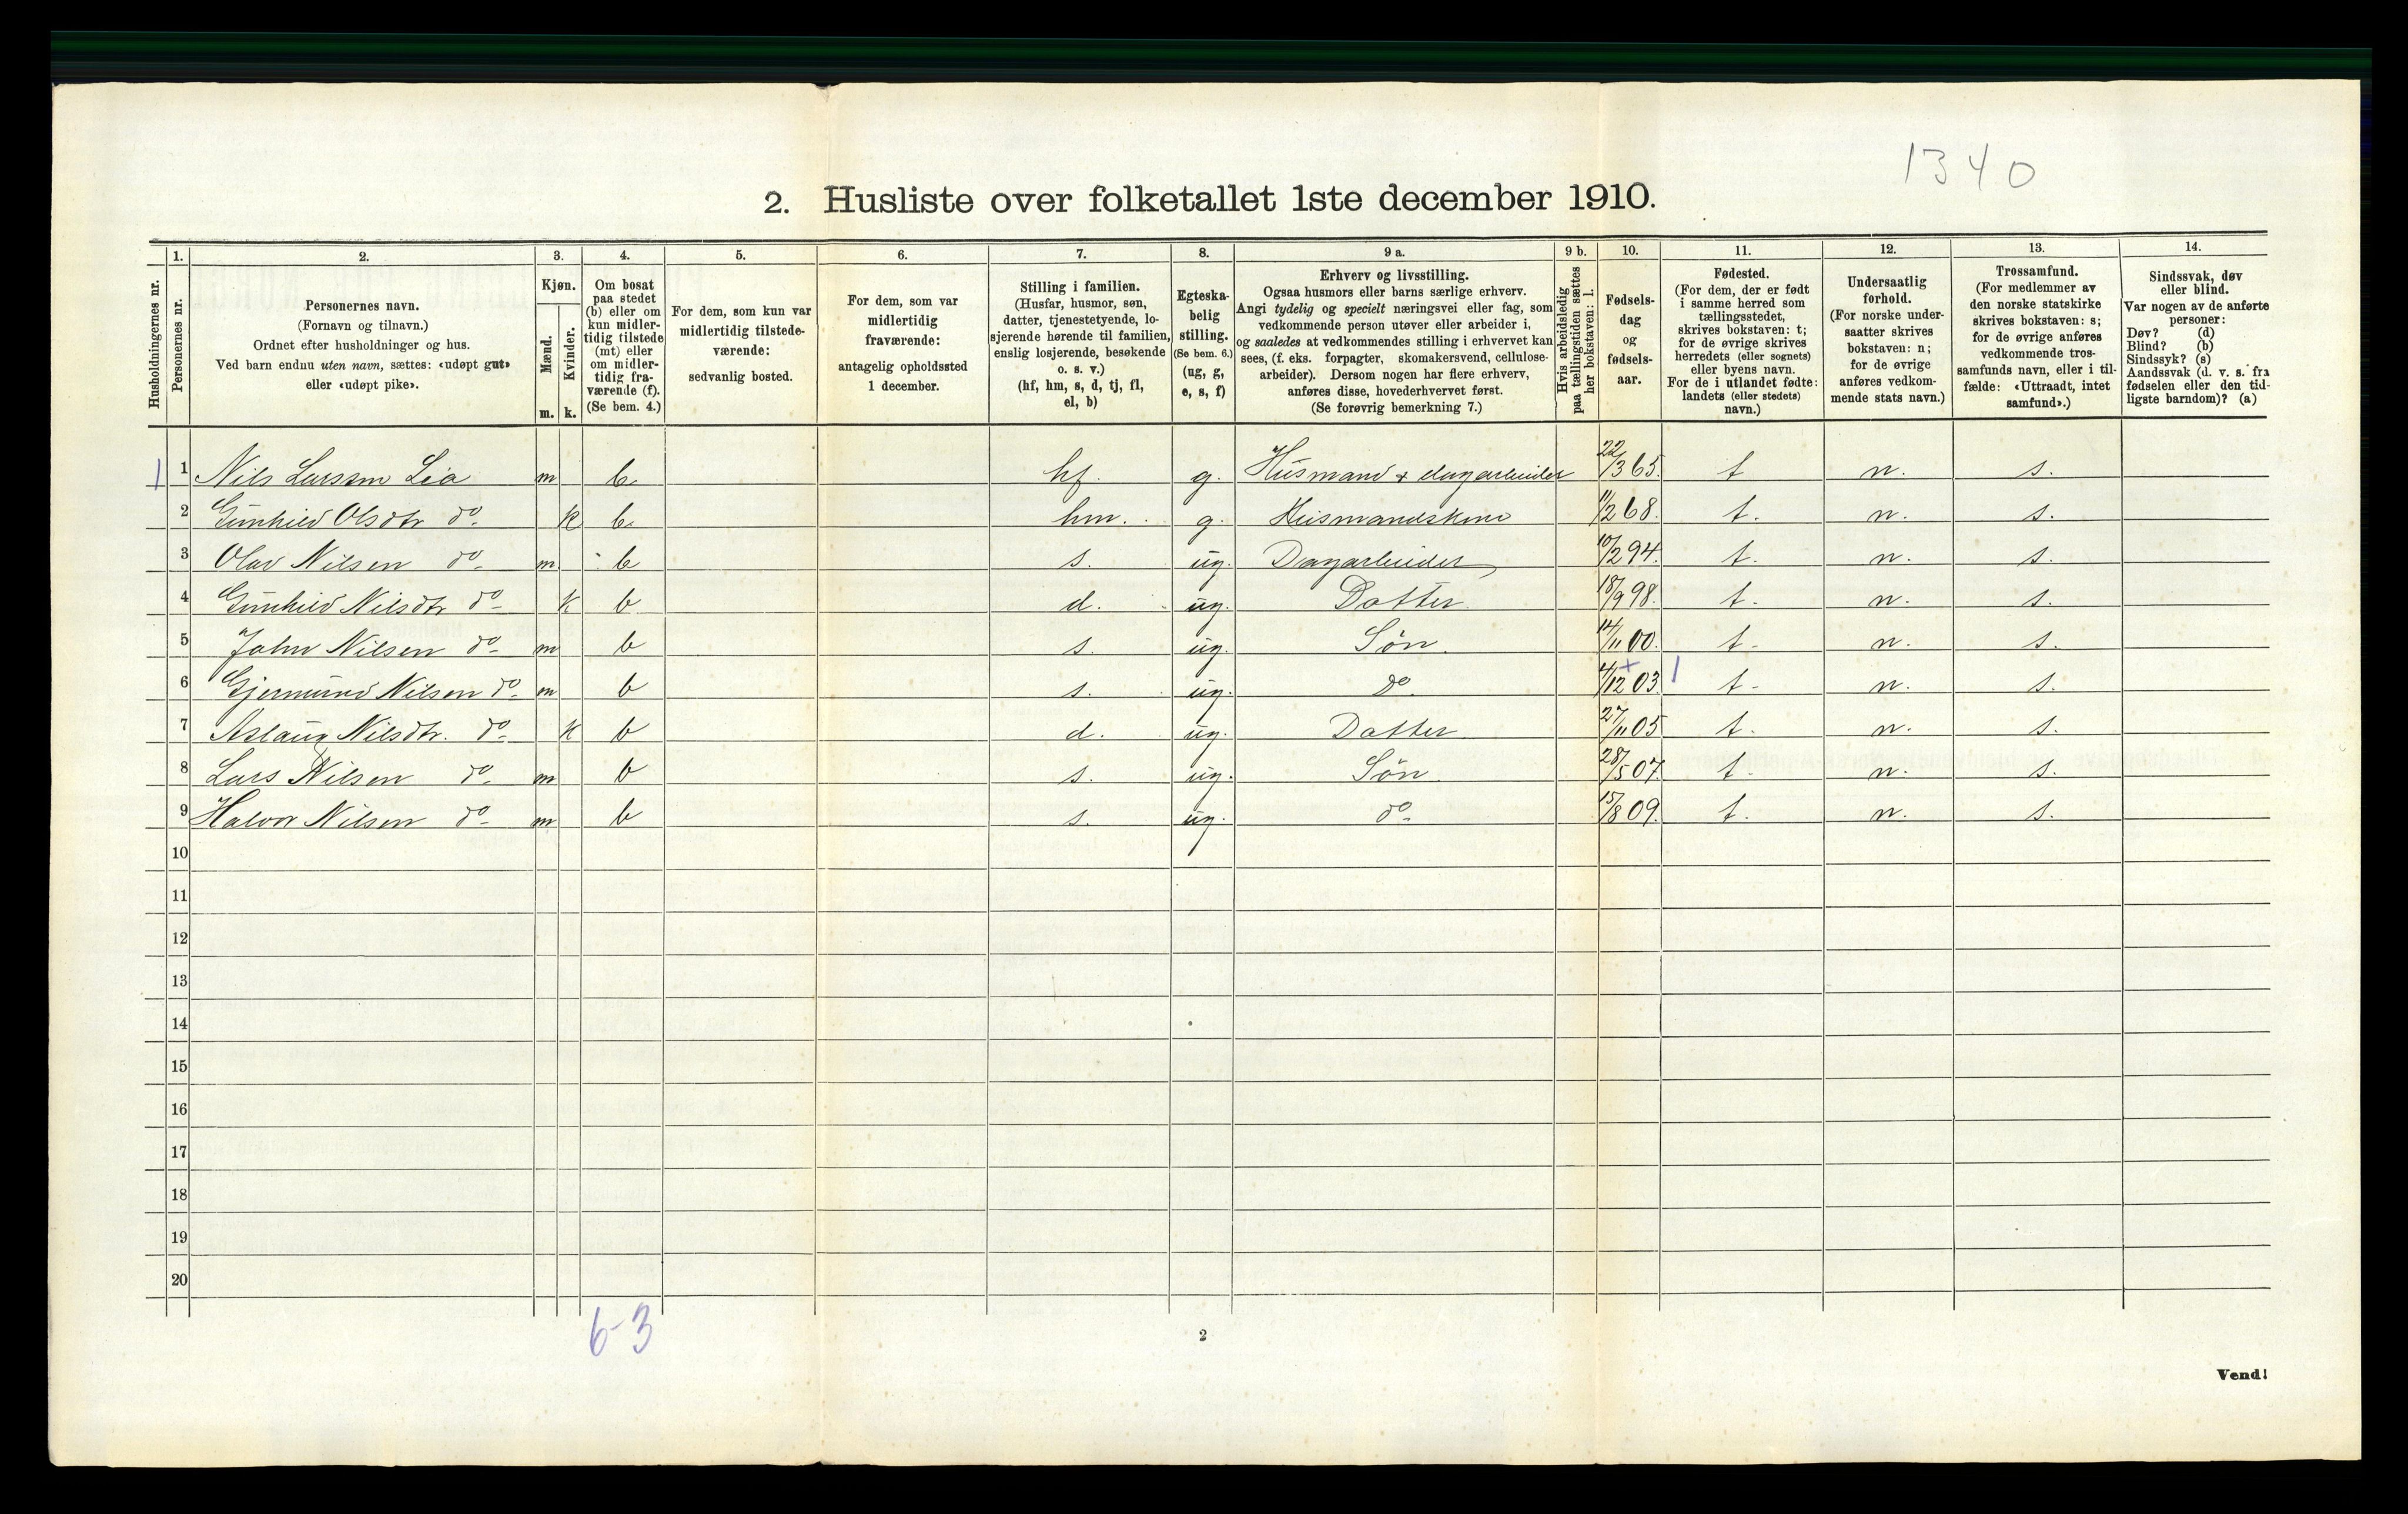 1340
2. Husliste over folketallet 1ste december 1910.
Husholdningernes nr.
1. Personernes nr.
2. Personernes navn.
(Fornavn og tilnavn.)
Ordnet efter husholdninger og hus.
Ved barn endnu uten navn, sættes: «udøpt gut»
eller «udøpt pike».
3. Kjøn.
Mænd. m.
Kvinder. k.
4. Om bosat
paa stedet
(b) eller om
kun midler-
tidig tilstede
(mt) eller
om midler-
tidig fra-
værende (f).
(Se bem. 4.)
5. For dem, som kun var
midlertidig tilstede-
værende:
sedvanlig bosted.
6. For dem, som var
midlertidig
fraværende:
antagelig opholdssted
1 december.
7. Stilling i familien.
(Husfar, husmor, søn,
datter, tjenestetyende, lo-
sjerende hørende til familien,
enslig losjerende, besøkende
o. s. v.)
(hf, hm, s, d, tj, fl,
el, b)
8. Egteska-
belig
stilling.
(Se bem. 6.)
(ug, g,
e, s, f)
9 a. Erhverv og livsstilling.
Ogsaa husmors eller barns særlige erhverv.
Angi tydelig og specielt næringsvei eller fag, som
vedkommende person utøver eller arbeider i,
og saaledes at vedkommendes stilling i erhvervet kan
sees, (f. eks. forpagter, skomakersvend, cellulose-
arbeider). Dersom nogen har flere erhverv,
anføres disse, hovederhvervet først.
(Se forøvrig bemerkning 7.)
9 b. Hvis arbeidsledig
paa tællingstiden sættes
her bokstaven: l.
10. Fødsels-
dag
og
fødsels-
aar.
11. Fødested.
(For dem, der er født
i samme herred som
tællingsstedet,
skrives bokstaven: t;
for de øvrige skrives
herredets (eller sognets)
eller byens navn.
For de i utlandet fødte:
landets (eller stedets)
navn.)
12. Undersaatlig
forhold.
(For norske under-
saatter skrives
bokstaven: n;
for de øvrige
anføres vedkom-
mende stats navn.)
13. Trossamfund.
(For medlemmer av
den norske statskirke
skrives bokstaven: s;
for de øvrige anføres
vedkommende tros-
samfunds navn, eller i til-
fælde: «Uttraadt, intet
samfund».)
14. Sindssvak, døv
eller blind.
Var nogen av de anførte
personer:
Døv? (d)
Blind? (b)
Sindssyk? (s)
Aandssvak (d. v. s. fra
fødselen eller den tid-
ligste barndom)? (a)
1 1 Nils Larssen Lia m b. hf. g. Husmand & dagarbeider 22/3 65. t n. s.
2 Gunhild Olsdtr do. k b. hm. g. Husmandskone 11/2 68. t. n. s.
3 Olav Nilsen do. m. b s. ug. Dagarbeider 10/2 94. t. n. s.
4 Gunhild Nilsdtr do k b d. ug. Datter 18/9 98. t. n. s.
5 John Nilsen do. m b s. ug. Søn. 14/11 00. t. n. s.
6 Gjermund Nilsen do. m b s. ug. do. 4/12 03. + 1 t. n. s.
7 Aslaug Nilsdtr. do. k b d. ug. Datter 27/11 05 t. n. s.
8 Lars Nilsen do. m b s. ug. Søn. 28/5 07. t. n. s.
9 Halvor Nilsen do. m b s. ug. do. 15/8 09. t. n. s.
10
11
12
13
14
15
16
17
18
19
20
6-3
2
Vend!